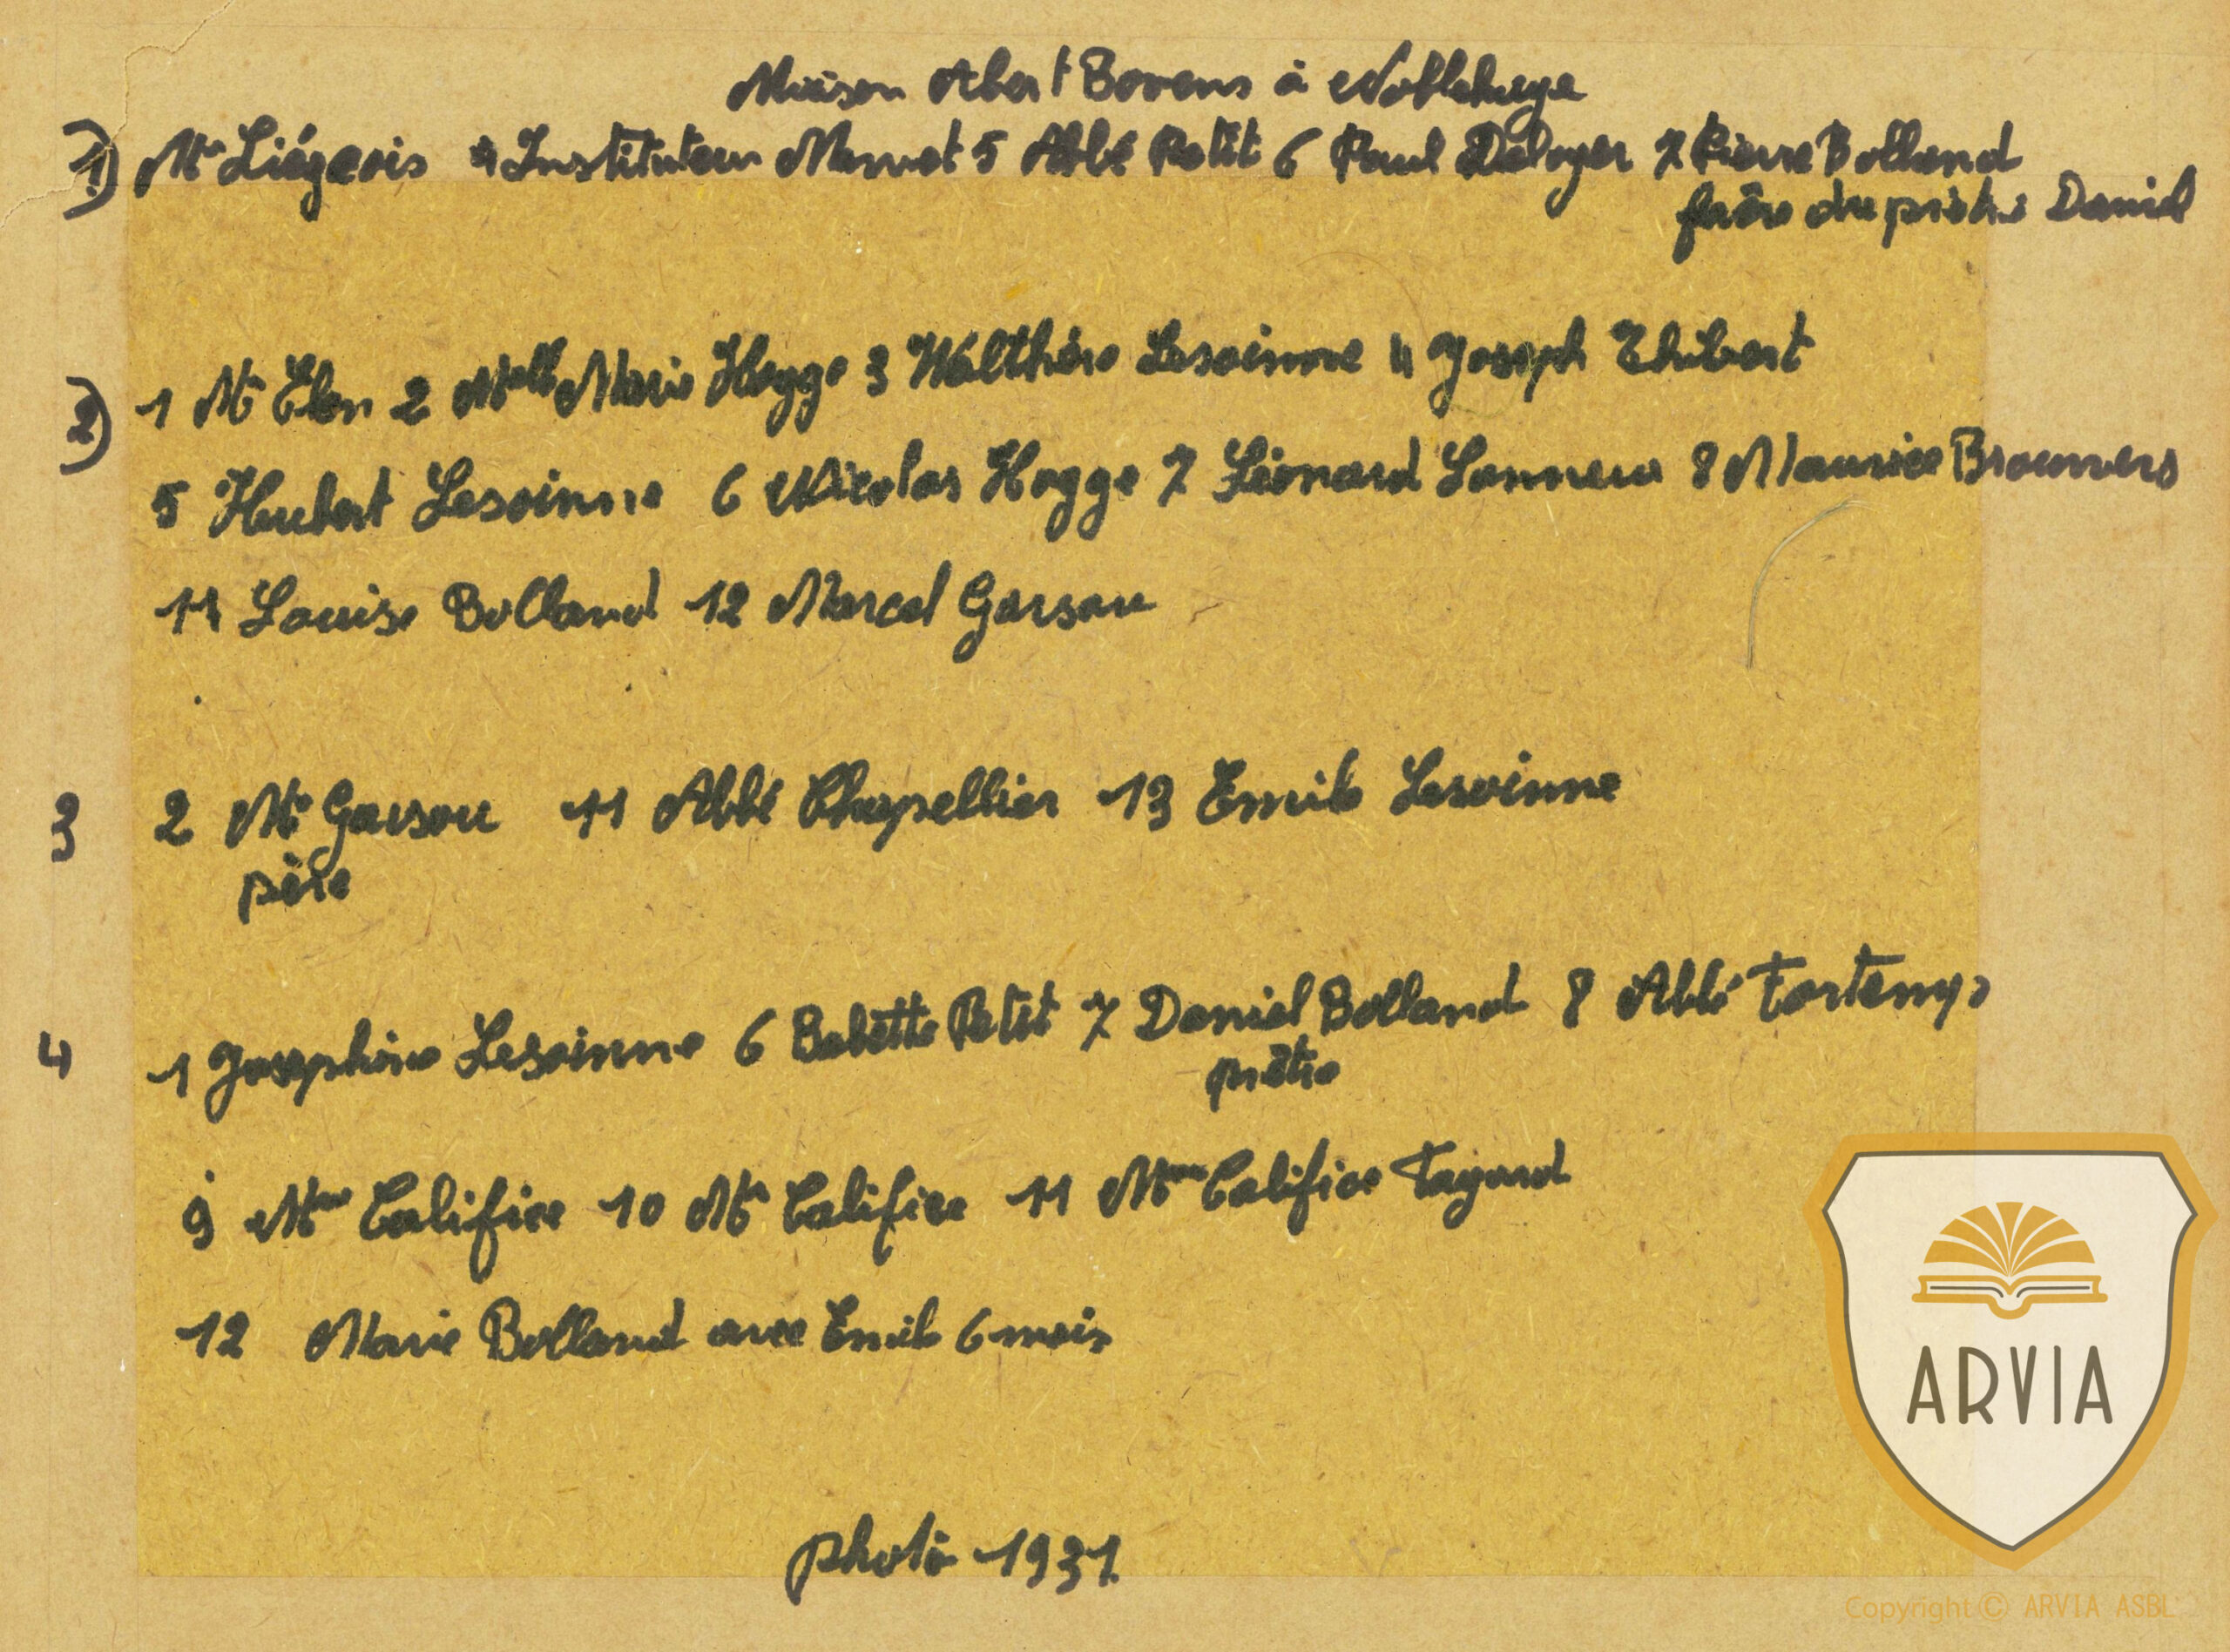 Maison Albert Bovens à Noblehaye
1) Mr Liégeois 4 Instituteur Mernet 5 Abbé Petit 6 Paul Deloyer 7 Pierre Bolland
frère du prêtre Daniel
2) 1 Mr Elen 2 Melle Marie Hogge 3 Walthère Lesoinne 4 Joseph Thibert
5 Hubert Lesoinne 6 Nicolas Hogge 7 Léonard Lonneux 8 Maurice Brouwers
11 Louise Bolland 12 Marcel Garsou
3 2 Mr Garsou 11 Abbé Chapellier 13 Emile Lesoinne
père
4 1 Josephine Lesoinne 6 Babette Petit 7 Daniel Bolland 8 Abbé Fortemps
prêtre
9 Mme Califice 10 Mr Califice 11 Mme Califice Fayard
12 Marie Bolland avec Emile 6 mois
photo 1937.
ARVIA
Copyright © ARVIA ASBL